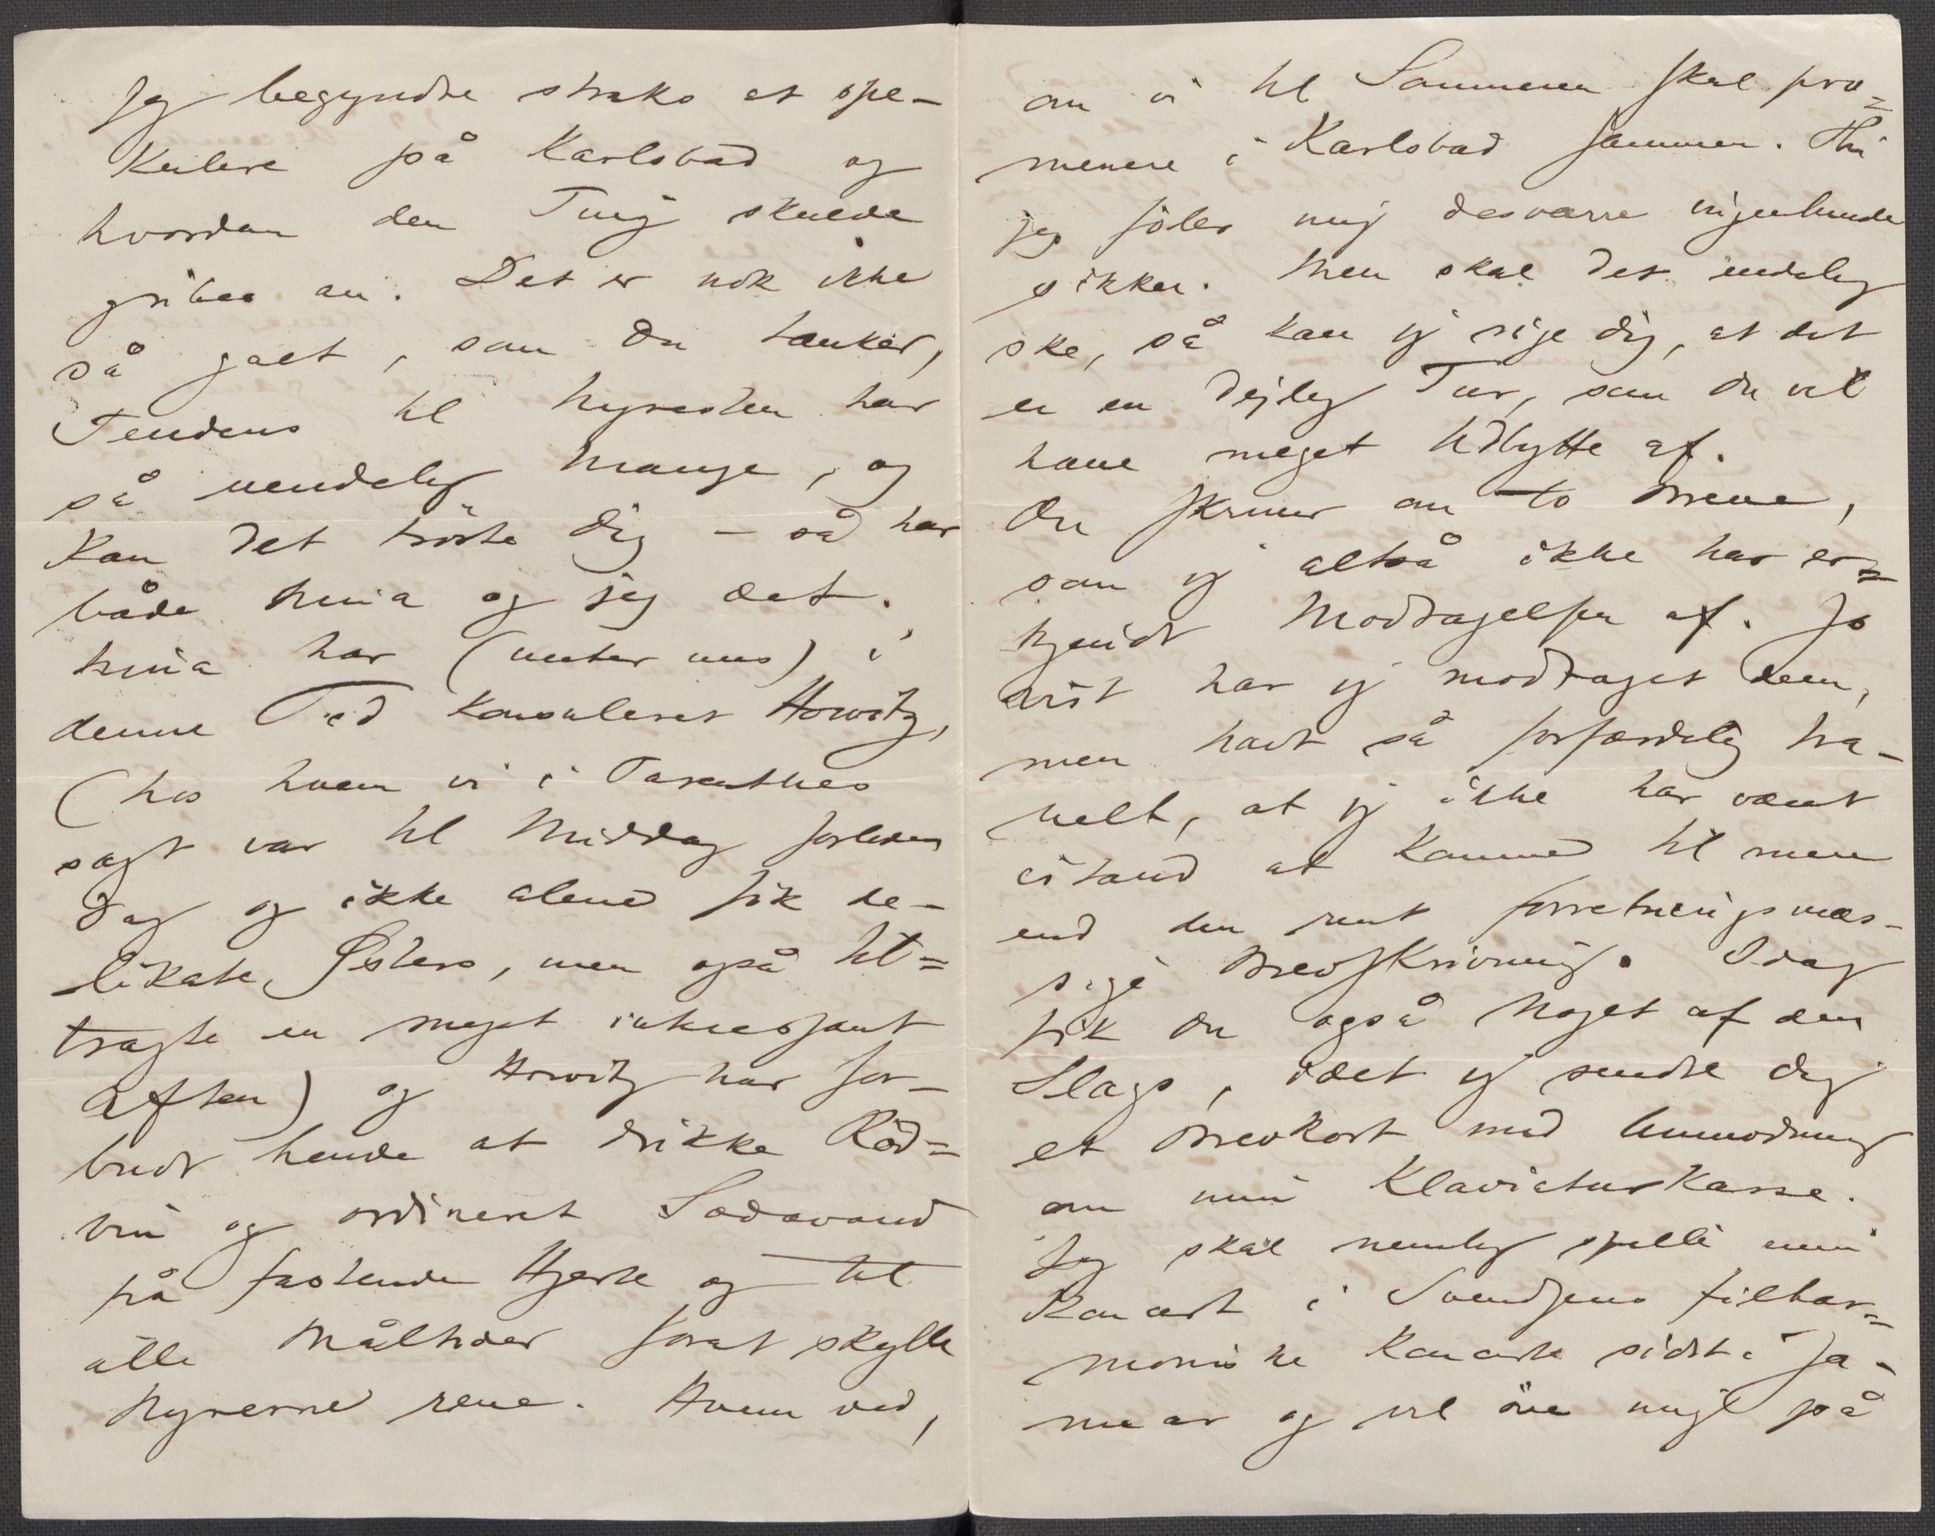 Jeg begyndte straks at spe-
kulere på Karlsbad og
hvordan den Ting skulde
gribes an. Det er nok ikke
så galt, som Du tænker,
Tendens til Nyresten har
så uendelig Mange, og
kan det trøste Dig – så har
både Nina og jeg det.
Nina har (unter uns) i
denne Tid konsuleret Howitz,
(hos hvem vi i Parenthes
sagt var til Middag forleden
Dag og ikke alene fik de-
likate Østers, men også til=
bragte en meget interessant
Aften) og Howitz har for-
budt hende at drikke Rød=
vin og ordineret Sodavand
på fastende Hjerte og til
alle Måltider forat skylle
Nyrerne rene. Hvem ved,
om vi til Sommeren skal pro=
menere i Karlsbad sammen. Thi
jeg føler mig desværre ingenlunde
sikker. Men skal det endelig
ske, så kan jeg sige Dig, at det
er en dejlig Tur, som Du vil
have meget Udbytte af.
Du skriver om to Breve,
som jeg altså ikke har er=
kjendt Modtagelsen af. Jo
vist har jeg modtaget dem,
men havt så forfærdelig tra-
velt, at jeg ikke har været
istand at komme til mere
end den rent forretningsmæs-
sige Brevskrivning. Idag
fik Du også Noget af den
Slags, idet jeg sendte Dig
et Brevkort med Anmodning
om min Klaviaturkasse.
Jeg skal nemlig spille min
Koncert i Svendsens filhar=
moniske Koncerter sidst i Ja-
nuar og vil øve mig på